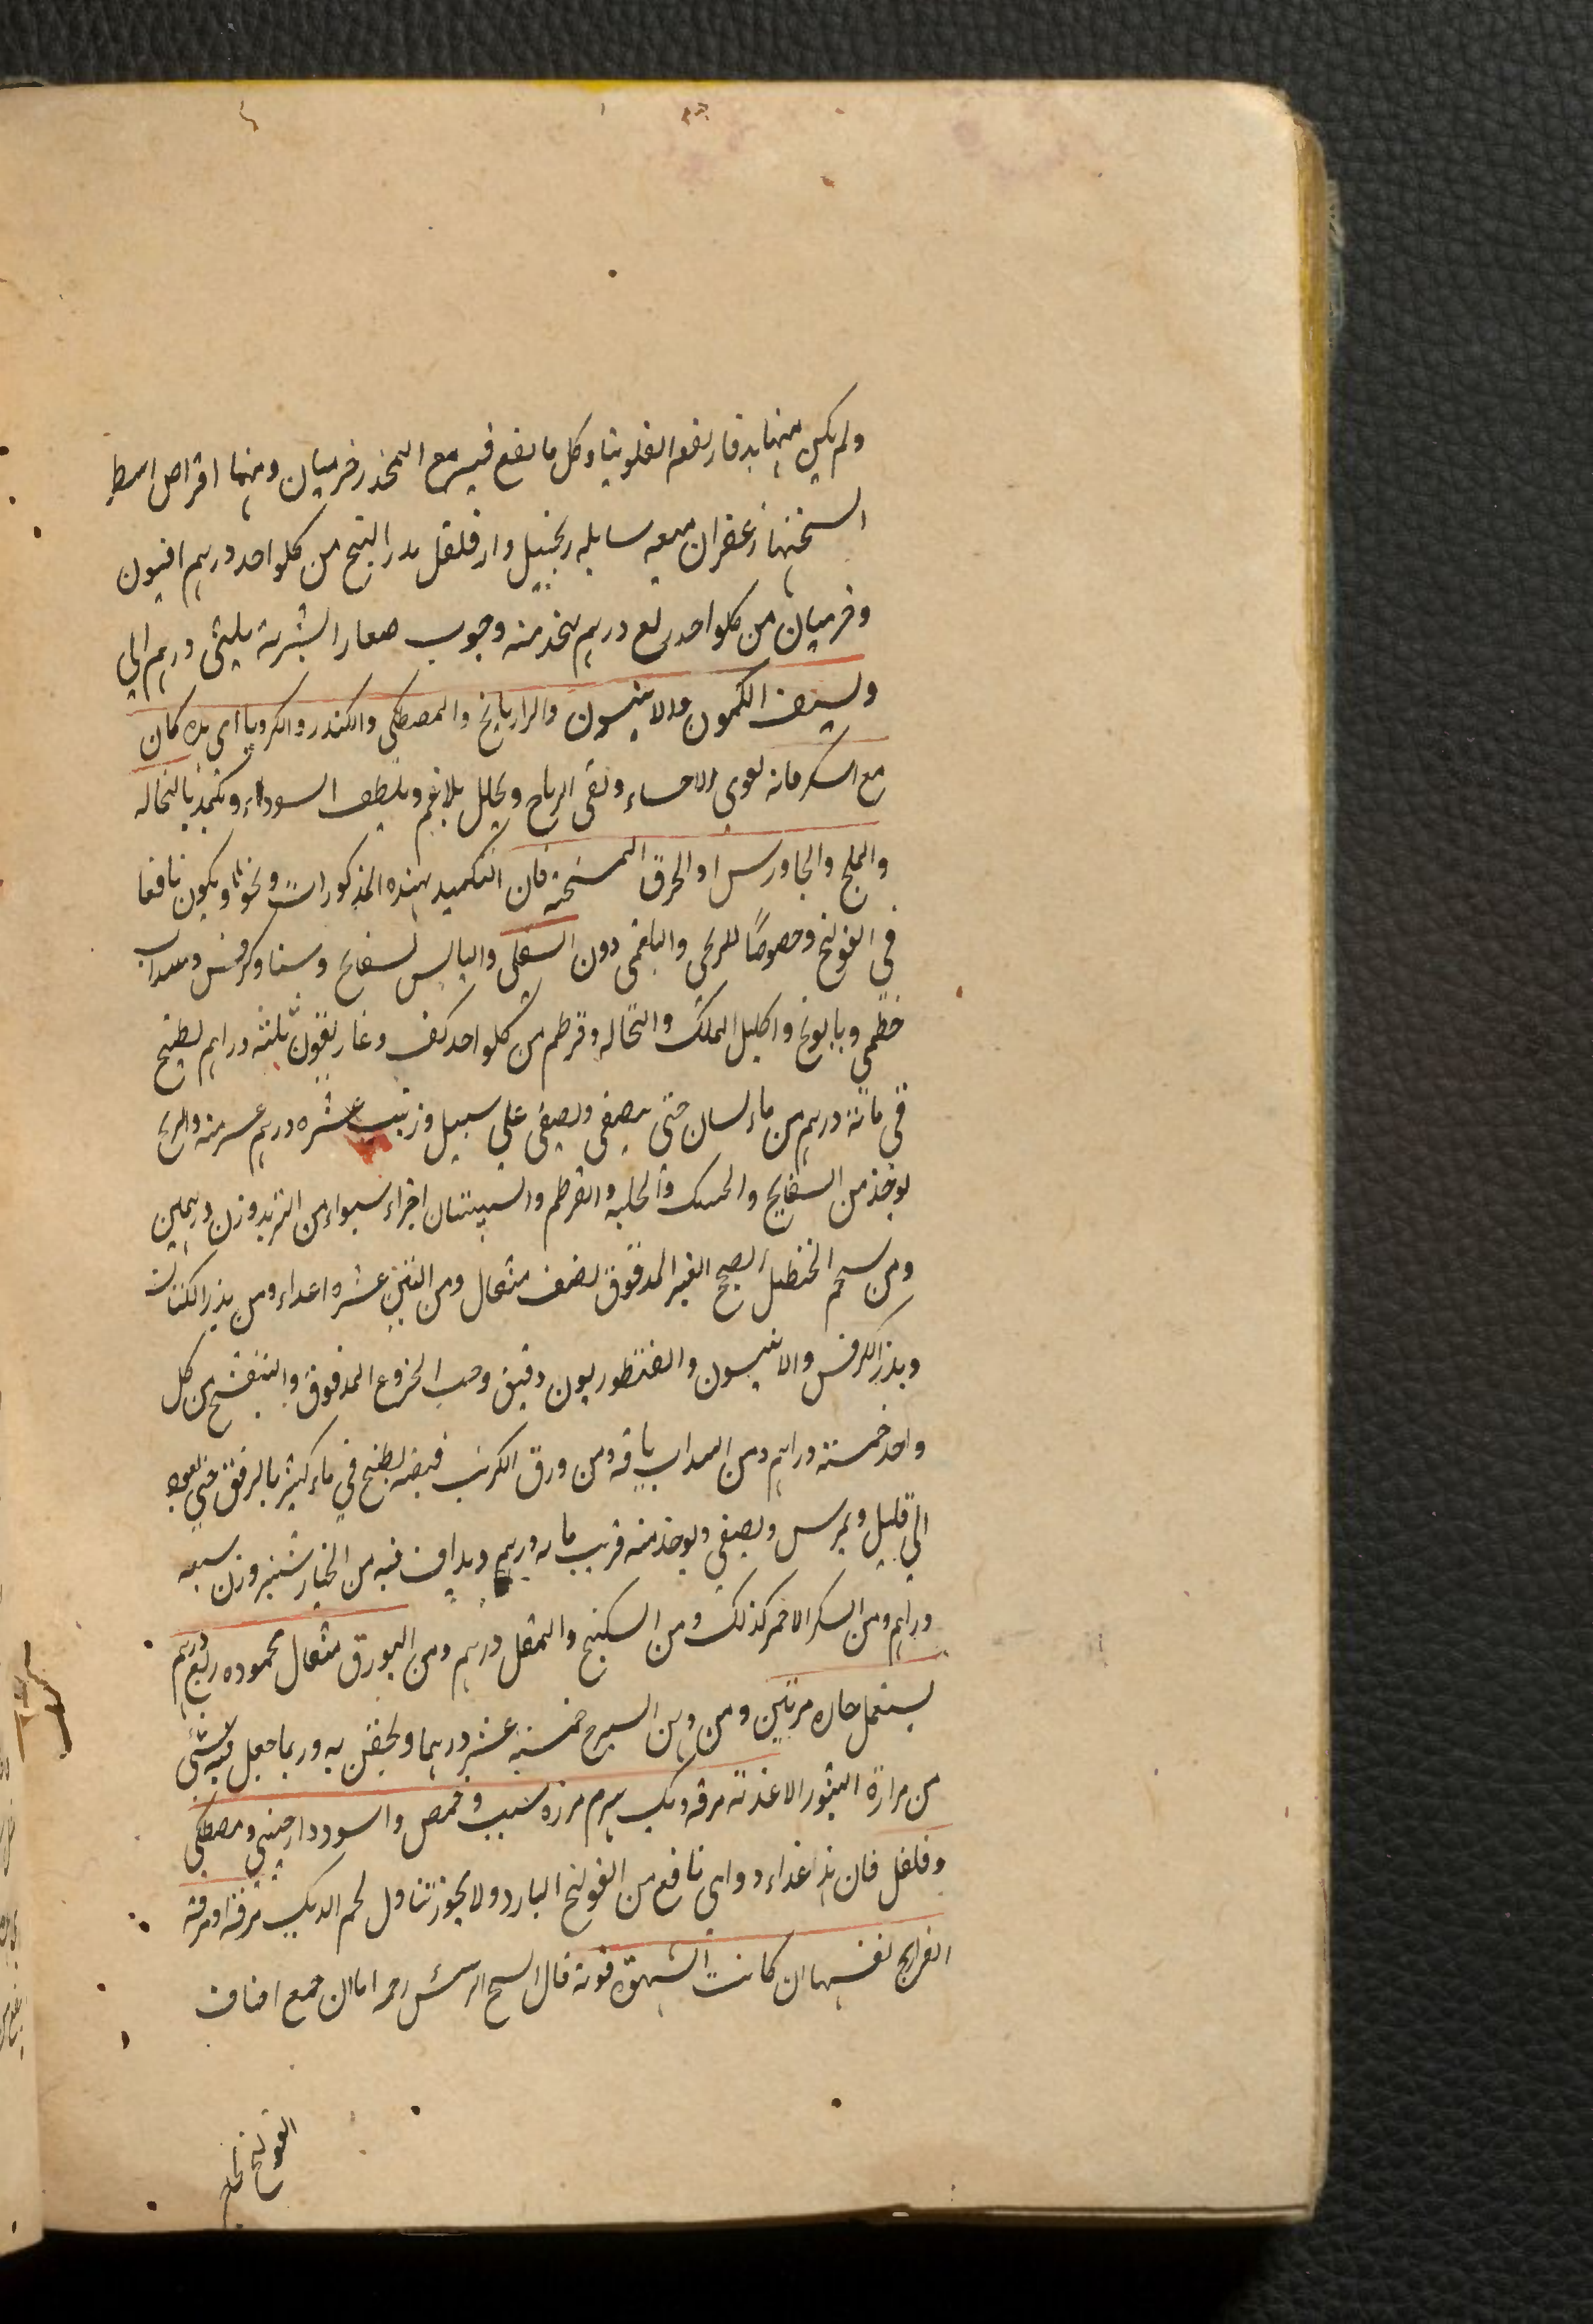 ولم يكن منها بد فارفعها الفلونيا وكل ما يقع فيه مع المخدر فربيان ومنها اقراص اسط
السخنها زعفران ميعه سايله زنجبيل دارفلفل بذر البنج من كلواحد درهم افيون
وفربيان من كلواحد ربع درهم يتخذ منه وحبوب صغار الشربة ثلثى درهم الى
وليسف الكمون والانيسون والرازيانج والمصطكى والكندر والكرويا اى بده كان
مع السكر فانه يقوى الاحشاء ونفى الرياح ويحلل بلاغم ويلطف السوداء وتكمد بالنخاله
والملح والجاورس او الخرق المسخنة فان التكميد بهذه المذكورات ونحوها ويكون نافعا
فى القولنج وخصوصًا للريحى والبلغمى دون الثفلى واليابس بسفايج وسنا وكرفس وسداب
خطمى وبابونج واكليل الملك والنخاله وقرطم من كلواحد كف وغاريقون ثلثة دراهم يطبخ
فى مائة درهم من ماء لسان حتى يصفى ويصفى على سبيل وزبيب عشره درهم
يوخذ من البسفايج والحسك والحلبه والقرطم والسپستان اجزاء سواء من التربد وزن درهمين
ومن شحم الحنظل الصحيح الغير المدقوق نصف مثقال ومن التين عشره اعداد ومن بذر الكتان
وبذر الكرفس والانيسون والقنطوريون دقيق وحب الخروع المدقوق والبنفسج من كل
واحد خمسة دراهم ومن السداب باقه ومن ورق الكرنب قبضه يطبخ فى ماء كثير بالرفق حتى يعود
الى قليل ويمرس ويصفى ويوخذ منه قريب مايه درهم ويداف فيه من الخيارشنبر وزن سبعه
دراهم ومن السكر الاحمر كذلك ومن السكبينج والمقل درهم ومن البورق مثقال محموده ربع درهم
يستعمل حاره مرتين ومن دهن السيرج خمسة عشر درهما ويحقن به وربما جعل فيه شئى
من مرارة الثور الاغذية مرقه ديك هرم مرزه شبت وحمص واسود دارچينى ومصطكى
وفلفل فان هذا غذاء دوائى نافع من القولنج البارد ولا يجوز تناول لحم الديك مرقة او مرقة
الفراريج نفسها ان كانت الشهوة قوية قال الشيخ الرئيس رحمه اما ان جميع اصناف
القولنج